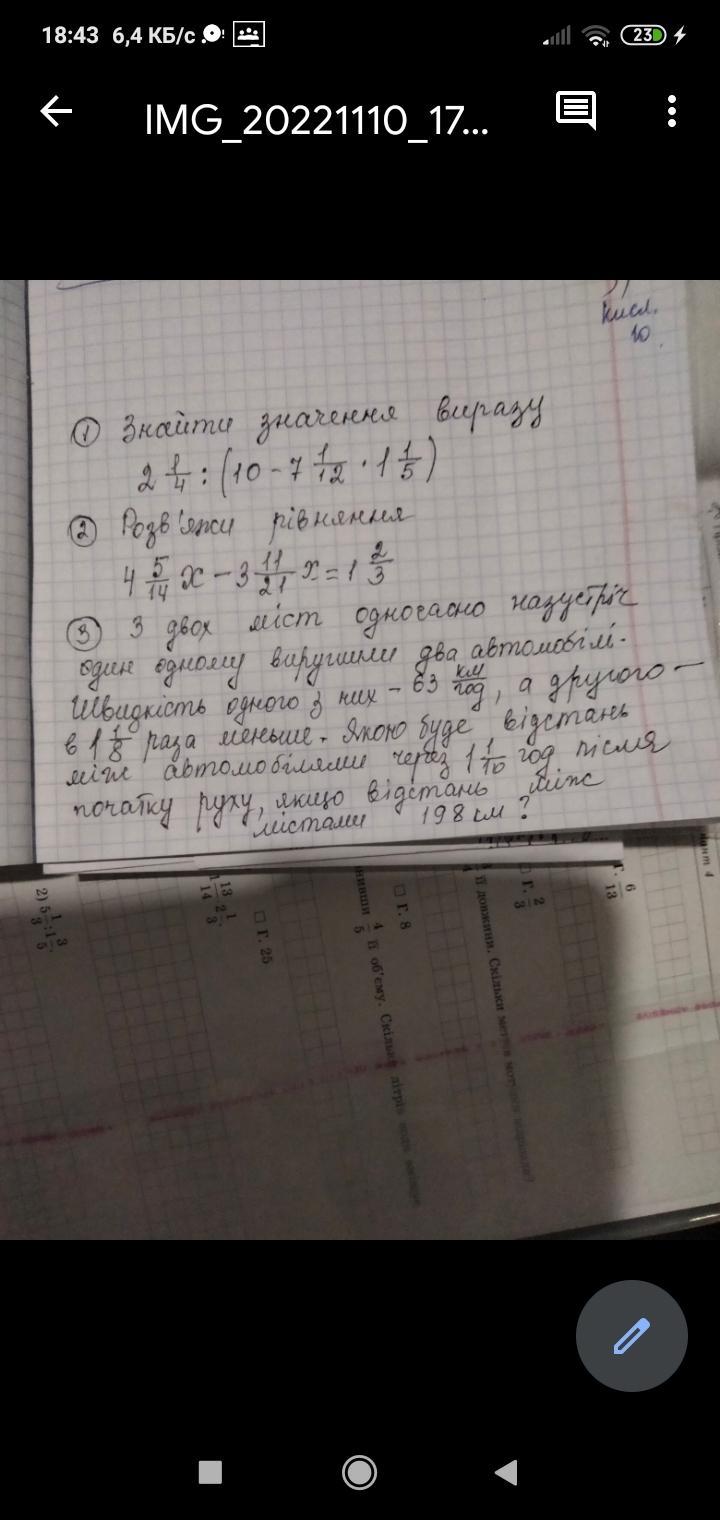 18:43 6,4 КБ/с
23
IMG_20221110_17...
кисл.
10
① Знайти значення виразу
2 1/4 : (10 - 7 1/12 · 1 1/5)
② Розв'яжи рівняння
4 5/14 x - 3 11/21 x = 1 2/3
③ З двох міст одночасно назустріч
один одному вирушили два автомобілі.
Швидкість одного з них - 63 км/год, а другого -
в 1 1/8 раза меньше. Якою буде відстань
між автомобілями через 1 1/10 год після
початку руху, якщо відстань між
містами 198 км?
нт 4
Г. 6/13
Г. 2/3
її довжини. Скільки метрів
Г. 8
нивши 4/5 її об'єму. Скільки літрів
Г. 25
1 13/14 · 2 1/3